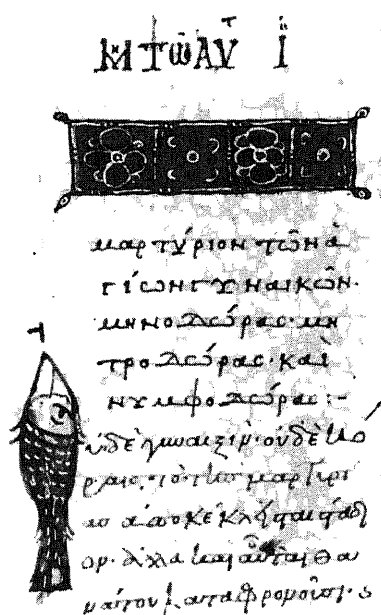 Μ Τῶ ΑΥ̓ Τ Ϊ
μαρτύριον τῶν ἁ
γίων γυναικῶν·
μηνοδώρας· μη
τροδώρας· καὶ
νυμφοδώρας:-
υδὲ γυναιξὶν· οὐδὲ κο
ραις, τὸ τοῦ μαρτυρί
ου ἀποκέκλησται στάδι
ον· ἀλλὰ καὶ αὗται θα
νάτου καταφρονοῦσι·